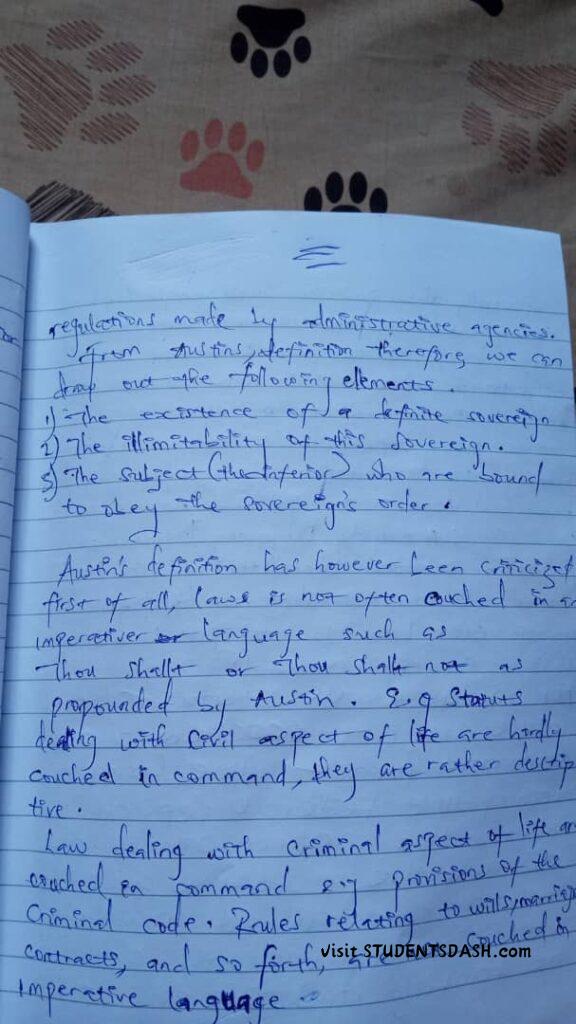 regulations made by administrative agencies.
From Austins definition therefore, we can
drap out the following elements.
1) The existence of a definite sovereign
2) The illimitability of this sovereign.
3) The subject (the inferior) who are bound
to obey the sovereign's order.
Austin's definition has however been criticized
first of all, laws is not often couched in an
imperativer language such as
Thou shallt or Thou shalt not as
propounded by Austin. E.g Statuts
dealing with Civil aspect of life are hardly
couched in command, they are rather descrip
tive.
Law dealing with Criminal aspect of life are
couched in command e.g provisions of the
Criminal code. Rules relating to wills, marriage
contracts, and so forth, are couched in
imperative language
visit STUDENTSDASH.com